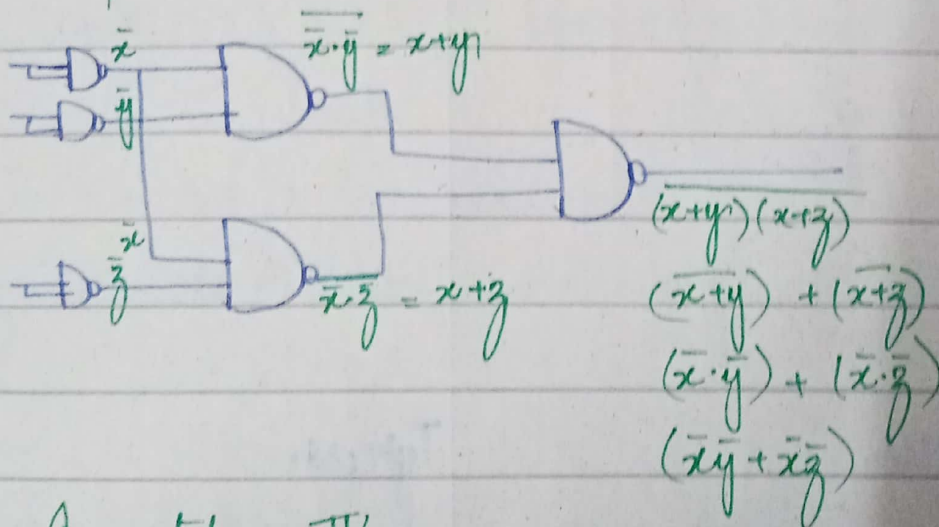 x̄
$\overline{\bar{x}\cdot\bar{y}}$ = x+y
ȳ
x̄
z̄
$\overline{\bar{x}\cdot\bar{z}}$ = x+z
$\overline{(x+y)(x+z)}$
($\overline{x+y}$) + ($\overline{x+z}$)
(x̄·ȳ) + (x̄·z̄)
(x̄ȳ + x̄z̄)